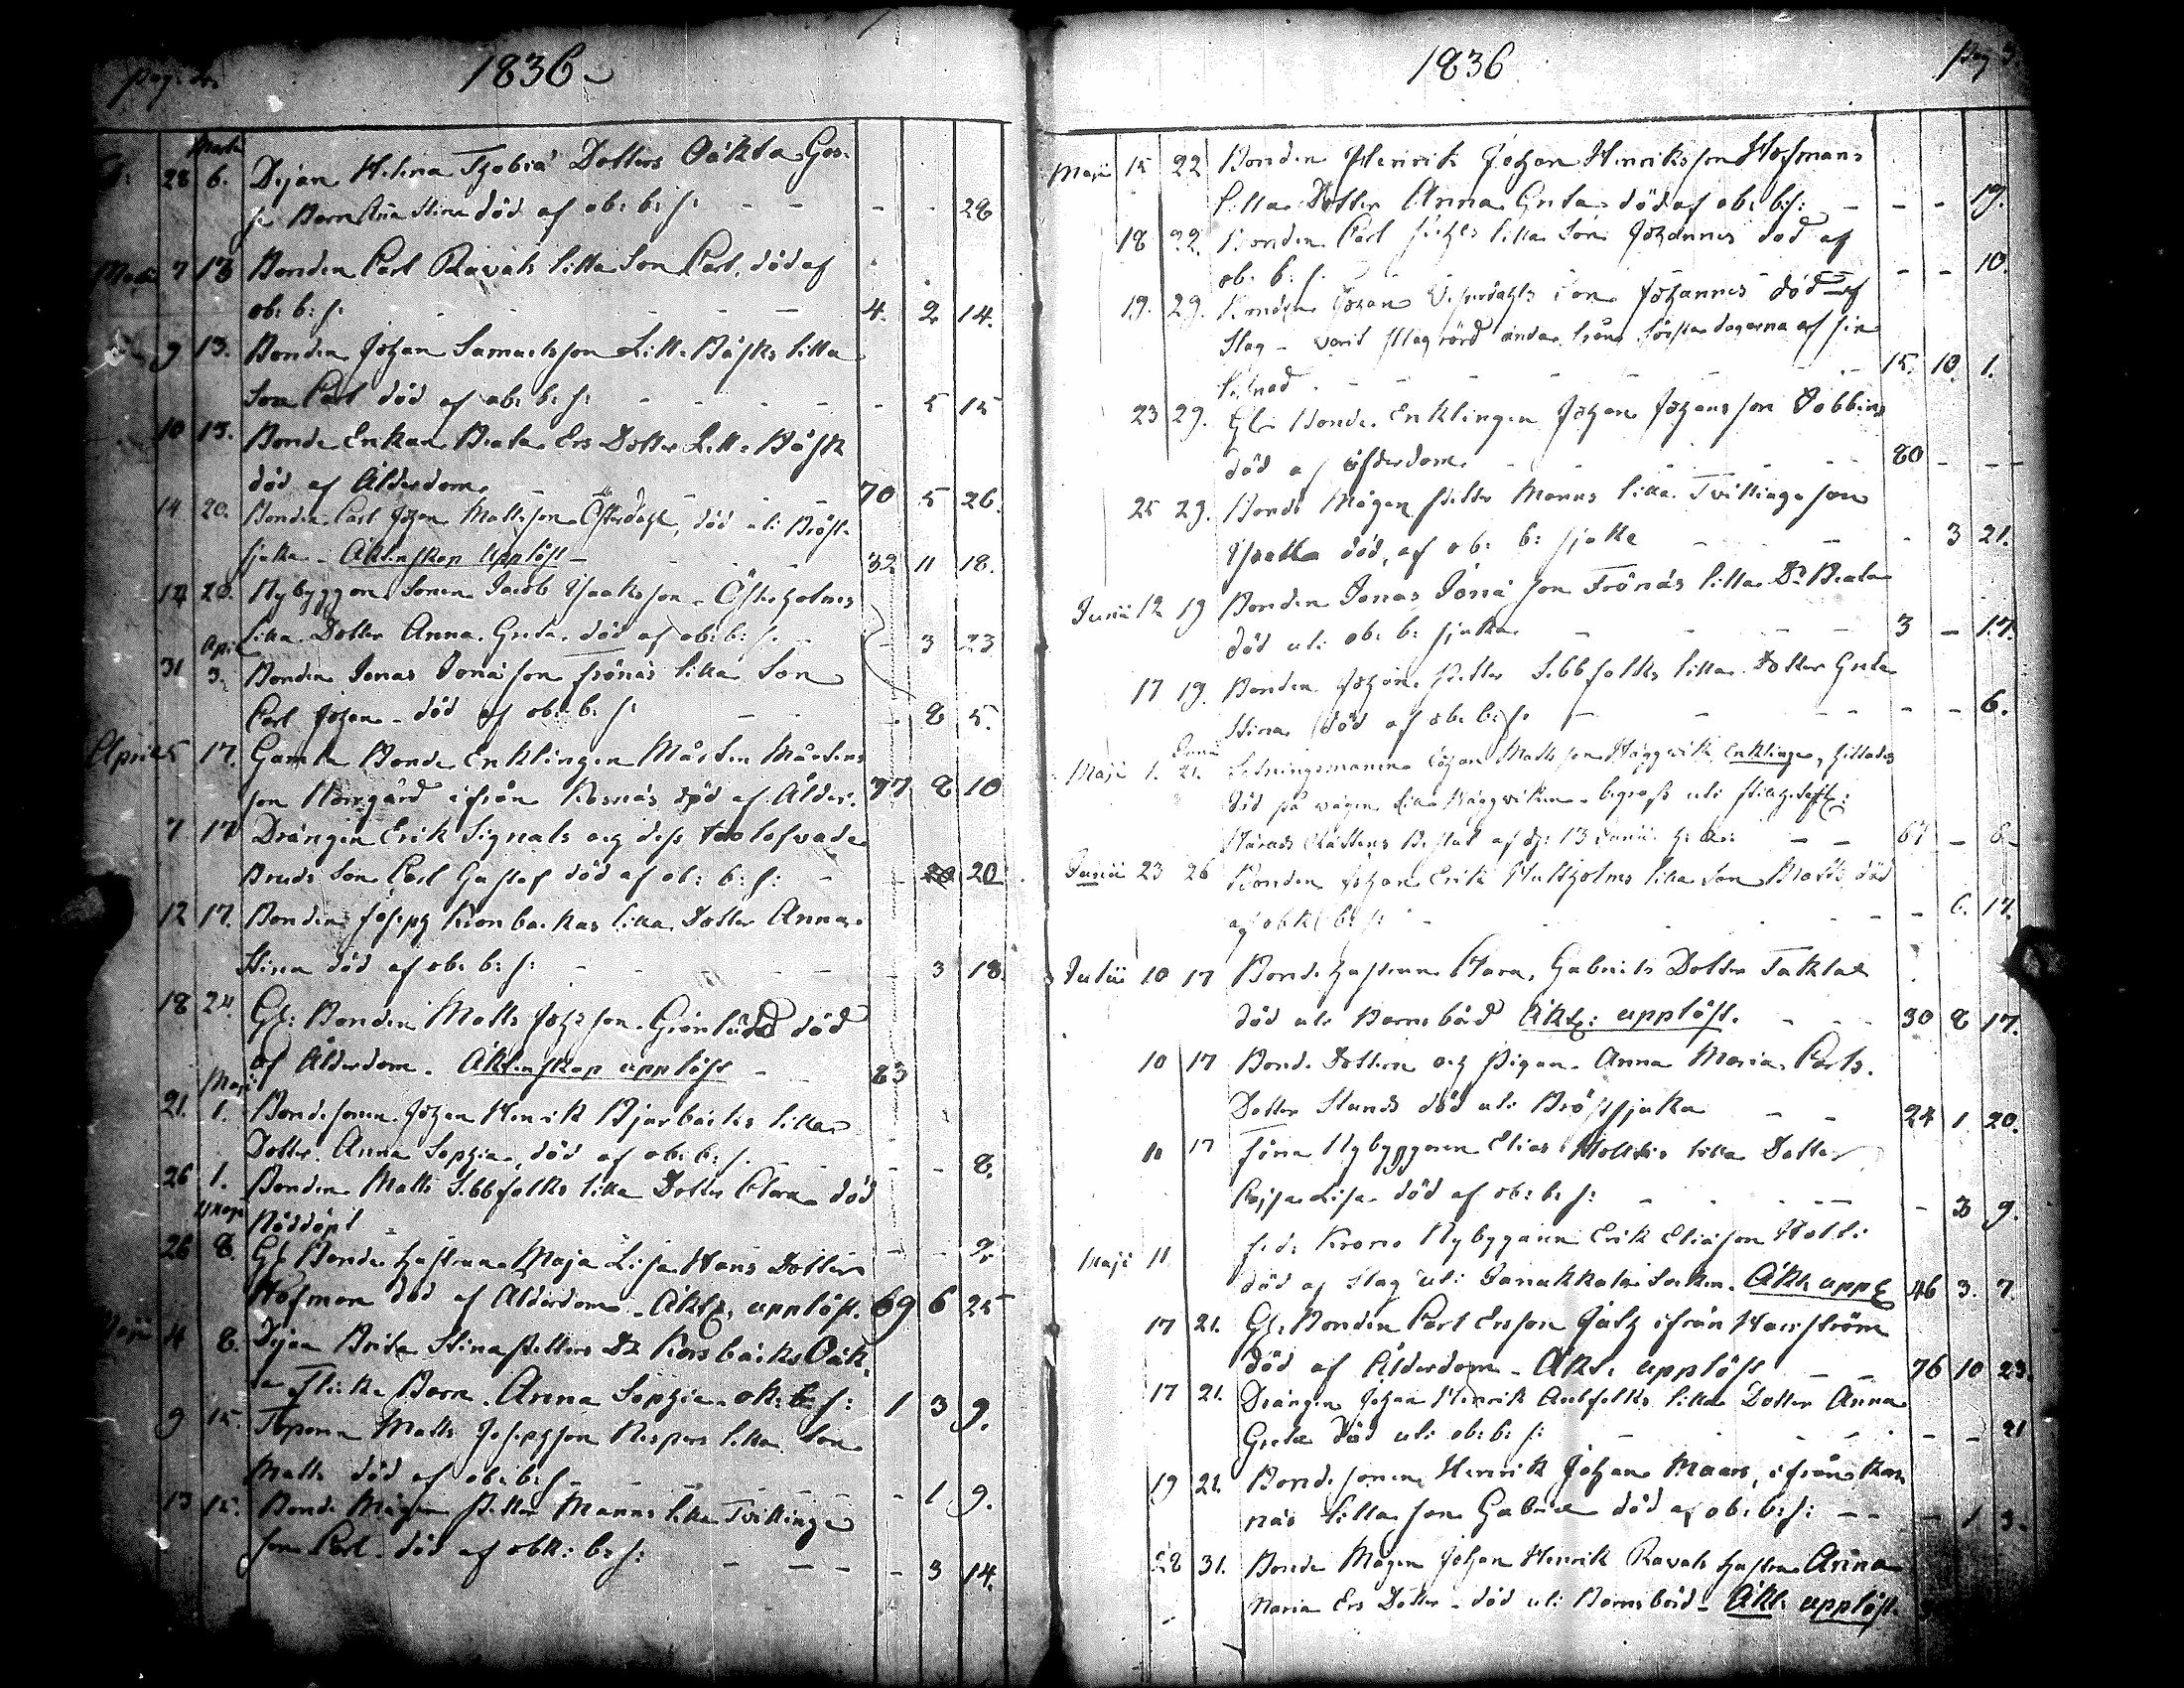 pag. 2.
1836
Martii
28 6. Pijan Helena Tzobiæ Dotters Oäkta Gos-
se Barn död af ob: b: s: - - - - 28
7 13 Bonden Carl Ravals lilla Son Carl, död af
ob: b: s: - - - - 4. 2 14.
9 13. Bonden Johan Samuelsson Lill-Bäsks lilla
Son Carl död af ob: b: s: - - - - 5 15
10 13. Bonde Enkan Beata Ers Dotter Lill-Bäsk
död af Ålderdom 70 5 26.
14 20. Bonden Carl Johan Mattsson Österdahl, död uti Bröst-
sjuka - Äktenskap upplöst - 32 11 18.
14 20. Nybyggare Sonen Jacob Isaksson Österholms
lilla Dotter Anna Greta död af ob: b: s: - 3 23
April
31 3. Bonden Jonas Jonasson Frönäs lilla Son
Carl Johan - död af ob: b: s: - - 8 5.
April 5 17. Gamla Bonde Enklingen Mårten Mårtens
son Norrgård ifrån Korsnäs död af Ålder. 77 8 10
7 17 Drängen Erik Signals och dess trolofvade
Bruds Son Carl Gustaf död af ob: b: s: - - 20 20
12 17. Bonden Joseph Kronbackas lilla Dotter Anna
Stina död af ob: b: s: - - - - 3 18.
18 24. Gl: Bonden Matts Johsson Grönlund död
af Ålderdom. Äktenskap upplöst - 83
Maji
21. 1. Bondesonen Johan Henrik Bjurbäcks lilla
Dotter Anna Sophia, död af ob: b: s. - - 8.
26 1. Bonden Matts Sibbfolks lilla Dotter Clara död
Nöddöpt - - 2.
Maji
26 8. Gl Bonde hustrun Maja Lisa Hans Dotter
Hofman död af Ålderdom. Äktsk. upplöst. 69 6 25
Maji 4 8. Pijan Brita Stina Petters Dr Korsbäcks Oäk-
ta Flicke Barn Anna Sophia ok: b: s: 1 3 9.
9 15. Torparen Matts Josephsson Rispers lilla Son
Matts död af ob: b: s - - - - 1 9.
13 15. Bonde Mågen Petter Manns lilla Tvillinge
son Carl död af obk: b: s: - - - 3 14.
1836
Pag 3.
Maji 15 22 Bonden Henrik Johan Henriksson Hofmans
lilla Dotter Anna Greta död af ob: b: s: - - - 19.
18 22. Bonden Carl lilla Son Johannes död af
ob. b: s. - - 10.
19. 29. Bonden Johan Söderdahls Son Johannes död af
Slag - varit slagrörd ända från första dagarna af sin
lefnad - - - - 15. 10. 1.
23 29. Gl: Bonde Enklingen Johan Johansson Dobbins
död af ålderdom. 80 - - -
25 29. Bonde Mågen Petter Manns lilla Tvillinge son
död, af ob: b: sjuka - - - 3 21.
Junii 12 19 Bonden Jonas Jonasson Frönäs lilla Dr Beata
död uti ob: b: sjuka - - - 3 - 17.
17 19. Bonden Johan Petter Sibbfolks lilla Dotter Greta
Stina död af ob: b: s. - - - - - 6.
Junii
Maji 1. 21. Ledningsmannen Johan Mattsson Häggvik, Enkling, hittades
död på vägen - begrofs uti enl:
Härads Rättens Beslut af d: 13 Junii h: a: - - 67 - 6
Junii 23 26 Bonden Johan Erik Hultholms lilla Son Matts död
af obk b: s: - - - 6. 17.
Julii 10 17 Bonde hustrun Clara Gabriels Dotter Taklax
död uti Barnsbörd Äktsk: upplöst. - - - 30 8 17.
10 17 Bonde Dottren och Pigan Anna Maria Carls
Dotter Slunds död uti Bröstsjuka - - 24 1 20.
10 17 Förra Nybyggaren Elias Molléis lilla Dotter
Cajsa Lisa död af ob: b: s: - - - 3 9.
Maji 11 f. d: Krono Nybyggaren Erik Eliasson Holli
död af Slag uti Janakkala Socken. Äkt. uppl 46 3. 7.
17 21. Gl. Bonden Carl Ersson Gäls ifrån Harrström
död af Ålderdom - Äkt. upplöst - - 76 10 23.
17 21. Drängen Johan Henrik Antfolks lilla Dotter Anna
Greta död uti ob: b: s: - - - - - 21
19 21. Bondesonen Henrik Johan Maars, ifrån Kors
näs lilla son Gabriel död af ob: b: s: - - - 1 3.
28 31. Bonde Mågen Johan Henrik Ravals hustru Anna
Maria Ers Dotter - död uti Barnsbörd - Äkt. upplöst.